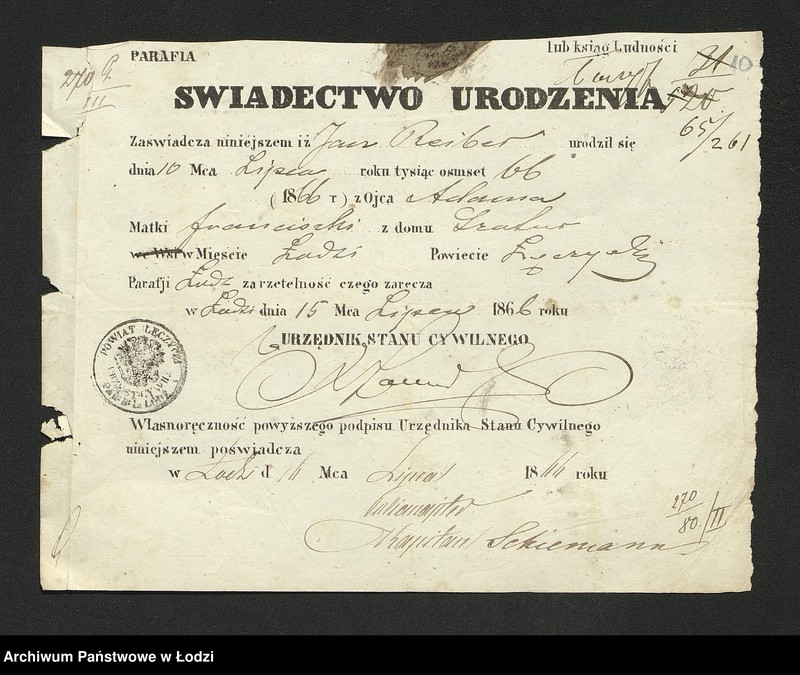 PARAFIA
lub ksiąg Ludności
270
III
21 10
ŚWIADECTWO URODZENIA 520
65/261
Zaświadcza niniejszem iż Jan Reiber urodził się
dnia 10 Mca Lipca roku tysiąc ośmset 66
(1866 r) z Ojca Adama
Matki Franciszki z domu
we Wsi w Mieście Łodzi Powiecie Łęczycki
Parafji Łodź za rzetelność czego zaręcza
w Łodzi dnia 15 Mca Lipca 1866 roku
URZĘDNIK STANU CYWILNEGO
POWIAT ŁĘCZYCKI
Własnoręczność powyższego podpisu Urzędnika Stanu Cywilnego
niniejszem poświadcza
w Łodzi d 16 Mca Lipca 1866 roku
Kapitan Schiemann
270/80/II
Archiwum Państwowe w Łodzi